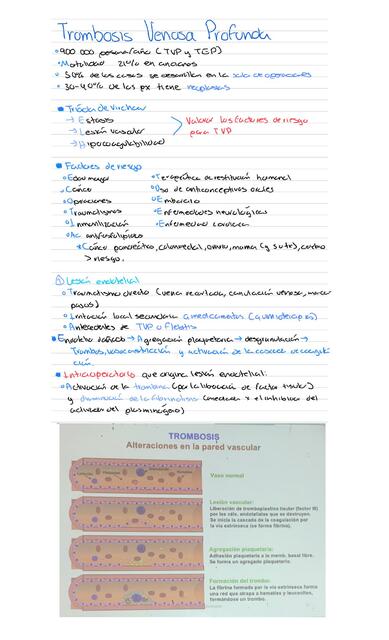 Trombosis Venosa Profunda
900 000 personas/año (TVP y TEP)
Mortalidad 21% en ancianos
50% de los casos se desarrollan en la sala de operaciones
30-40% de los px tiene neoplasias
Triada de Virchow
→ Estasis
→ Lesión vascular
→ Hipercoagulabilidad
Valorar los factores de riesgo
para TVP
Factores de riesgo
Edad mayor
Cáncer
Operaciones
Traumatismos
Inmovilización
Ac antifosfolípidos
Terapéutica de restitución hormonal
Uso de anticonceptivos orales
Embarazo
Enfermedades neurológicas
Enfermedad cardiaca
*Cáncer pancreático, colorrectal, ovario, mama
> riesgo.
Lesión endotelial
Traumatismo directo (vena resecada, canulación venosa, marca
pasos)
Irritación local secundaria a medicamentos (quimioterapias)
Antecedentes de TVP o Flebitis
Endotelio dañado → Agregación plaquetaria → desgranulación →
Trombos, vasoconstricción y activación de la cascada de coagula
ción.
Intraoperatorio que origina lesión endotelial:
Activación de la trombina (por la liberación de factor tisular)
y disminución de la fibrinolisis (mediada x el inhibidor del
activador del plasminógeno)
TROMBOSIS
Alteraciones en la pared vascular
Vaso normal
Lesión vascular:
Liberación de tromboplastina tisular (factor III)
por las céls. endoteliales que se destruyen.
Se inicia la cascada de la coagulación por
la vía extrínseca (se forma fibrina).
Agregación plaquetaria:
Adhesión plaquetaria a la memb. basal libre.
Se forma un agregado plaquetario.
Formación del trombo:
La fibrina formada por la vía extrínseca forma
una red que atrapa a hematíes y leucocitos,
formándose un trombo.